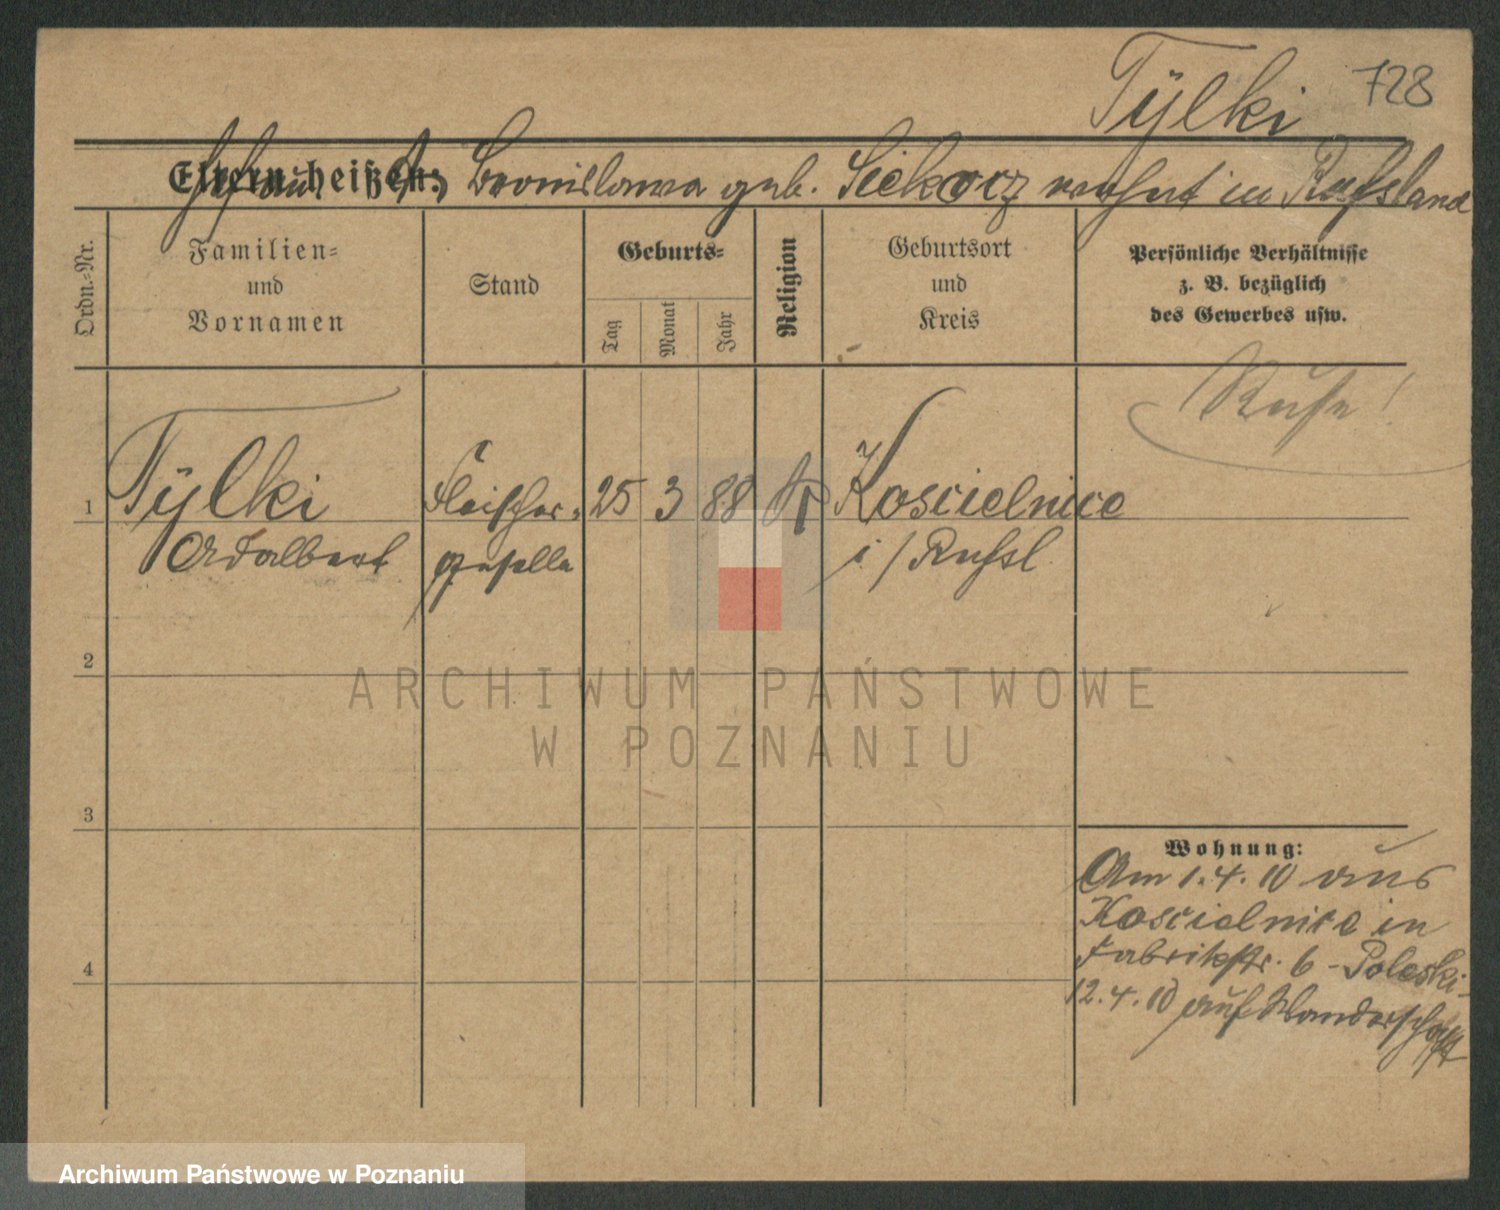 Tÿlki 728
Eltern heißen:
Ehefrau Bronislawa geb. Siekacz wohnt in Russland
Ordn.=Nr.
Familien=
und
Vornamen
Stand
Geburts=
Tag
Monat
Jahr
Religion
Geburtsort
und
Kreis
Persönliche Verhältnisse
z. B. bezüglich
des Gewerbes usw.
Russe!
1 Tÿlki Fleischer= 25 3 88 Koscielnice
Adalbert geselle i/Russl
2
3
4
Wohnung:
Am 1.4.10 aus
Koscielnice in
Fabrikstr. 6 - Poleski
12.4.10 auf Wanderschaft
ARCHIWUM PAŃSTWOWE
W POZNANIU
Archiwum Państwowe w Poznaniu